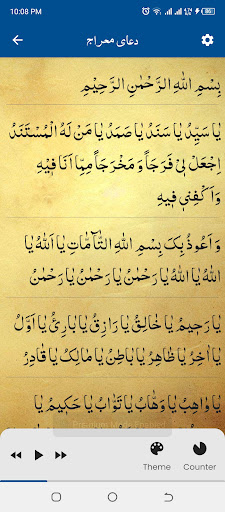 10:08 PM
دعای معراج
بِسْمِ اللهِ الرَّحْمٰنِ الرَّحِيْمِ
يَا سَيِّدُ يَا سَنَدُ يَا صَمَدُ يَا مَنْ لَهُ الْمُسْتَنَدُ
اِجْعَلْ لِيْ فَرَجاً وَ مَخْرَجاً مِمَّا اَنَا فِيْهِ
وَ اَكْفِنِيْ فِيْهِ
وَ اَعُوْذُ بِکَ بِسْمِ اللهِ التَّآمَّاتِ يَا اَللهُ يَا
اَللهُ يَا اَللهُ يَا رَحْمٰنُ يَا رَحْمٰنُ يَا رَحْمٰنُ
يَا رَحِيْمُ يَا خَالِقُ يَا رَازِقُ يَا بَارِئُ يَا اَوَّلُ
يَا اٰخِرُ يَا ظَاهِرُ يَا بَاطِنُ يَا مَالِکُ يَا قَادِرُ
يَا وَاهِبُ يَا وَهَّابُ يَا تَوَّابُ يَا حَکِيْمُ يَا
Theme
Counter